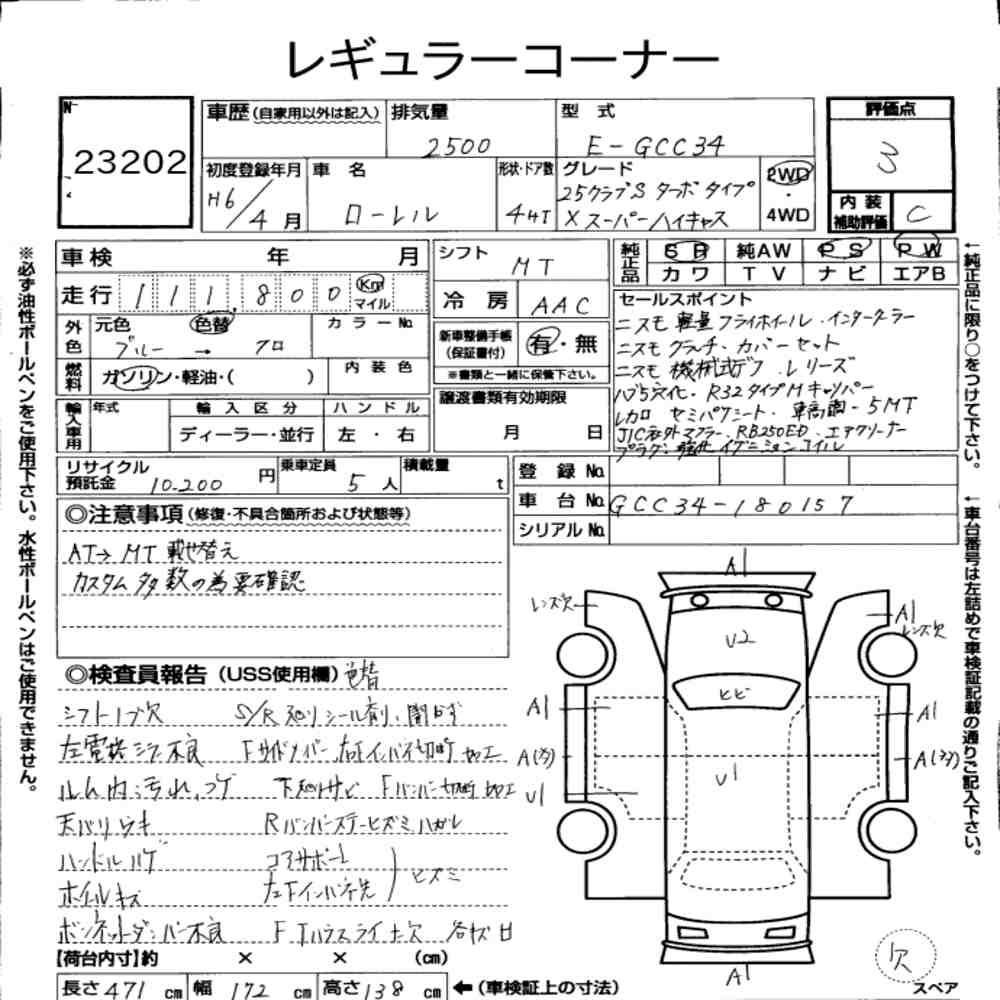 レギュラーコーナー
No 23202
車歴(自家用以外は記入)
排気量 2500
型式 E-GCC34
評価点 3
初度登録年月 H6/4月
車名 ローレル
形状・ドア数 4HT
グレード 25クラブS ターボ タイプ
X スーパーハイキャス
2WD・4WD
内装補助評価 C
車検 年 月
シフト MT
純正品 SR 純AW PS PW
カワ TV ナビ エアB
走行 111,800 Km マイル
冷房 AAC
セールスポイント
ニスモ 軽量フライホイール・インタークーラー
ニスモ クラッチ・カバーセット
ニスモ 機械式デフ レリーズ
ハブ5穴化・R32タイプMキャリパー
レカロ セミバケシート・車高調・5MT
JIC社外マフラー・RB25DED・エアクリーナー
プラグ 強化イグニッションコイル
外色 元色 色替 カラーNo.
ブルー → クロ
新車整備手帳(保証書付) 有・無
※書類と一緒に保管下さい。
燃料 ガソリン・軽油・( )
内装色
譲渡書類有効期限
月 日
輸入車用 年式 輸入区分 ハンドル
ディーラー・並行 左・右
リサイクル預託金 10.200円
乗車定員 5人
積載量 t
登録No.
車台No. GCC34-180157
シリアルNo.
◎注意事項(修復・不具合箇所および状態等)
AT→MT載せ替え
カスタム多数の為要確認
◎検査員報告(USS使用欄) 色替
シフトノブ欠 S/R廻りシール剤、開かず
左電格ミラー不良 Fサイドメンバー、右Fインパネ切断加工
ルーム内:汚れ、コゲ 下廻りサビ Fバンパー切断加工
天バリウキ Rバンパーステーヒズミ、ハガレ
ハンドルハゲ コアサポート
ホイルキズ 左Fインパネ先 ヒズミ
ボンネットダンパー不良
【荷台内寸】約 × × (cm)
長さ471cm 幅172cm 高さ138cm ←(車検証上の寸法)
A1
レンズ欠
A1
レンズ欠
U2
ヒビ
A1
A1
U1
U1
A1
欠
スペア
※必ず油性ボールペンをご使用下さい。水性ボールペンはご使用できません。
←純正品に限り○をつけて下さい。
←車台番号は左詰めで車検証記載の通りご記入下さい。